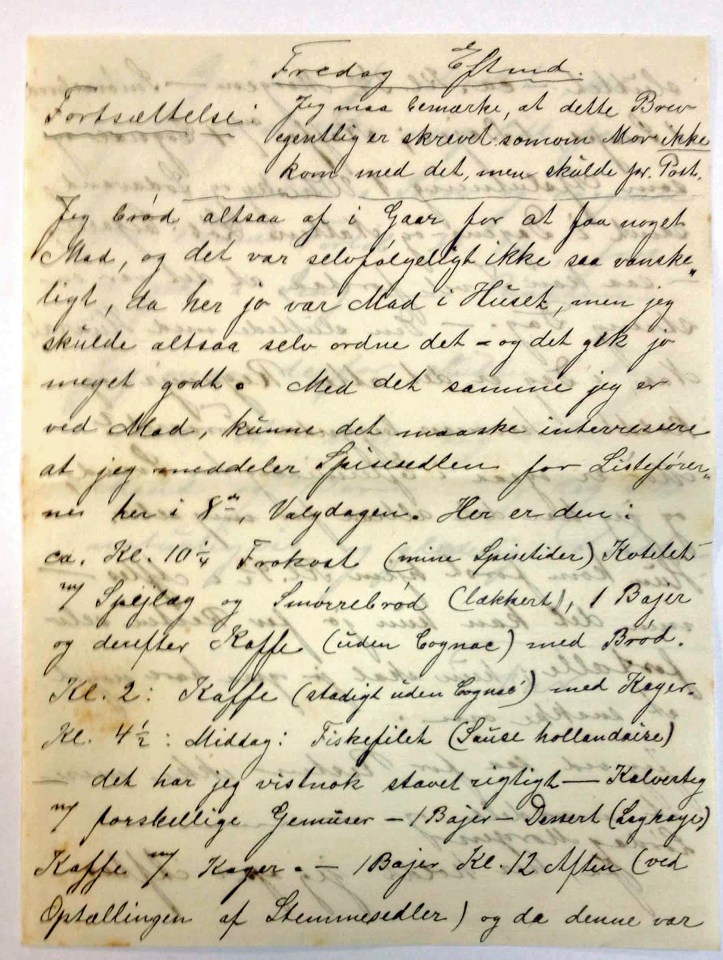 Fredag Eftmd.
Fortsættelse: Jeg maa bemærke, at dette Brev
egentlig er skrevet somom Mor ikke
kom med det, men skulde pr. Post.
Jeg brød altsaa af i Gaar for at faa noget
Mad, og det var selvfølgeligt ikke saa vanske„
ligt, da her jo var Mad i Huset, men jeg
skulde altsaa selv ordne det – og det gik jo
meget godt. Med det samme jeg er
ved Mad, kunne det maaske interressere
at jeg meddeler Spisesedlen for Listefører„
nes her i 8de, Valgdagen. Her er den:
ca. Kl. 10 1/4 Frokost (mine Spisetider) Kotelet
m/ Spejlæg og Smørrebrød (lækkert), 1 Bajer
og derefter Kaffe (uden Cognac) med Brød.
Kl. 2: Kaffe (stadigt uden Cognac) med Kager.
Kl. 4 1/2: Middag: Fiskefilet (Sause hollandaise)
— det har jeg vistnok stavet rigtigt — Kalvesteg
m/ forskellige Gemüser – 1 Bajer – Dessert (Lagkage)
Kaffe m/ Kager. – 1 Bajer Kl. 12 Aften (ved
Optællingen af Stemmesedler) og da denne var